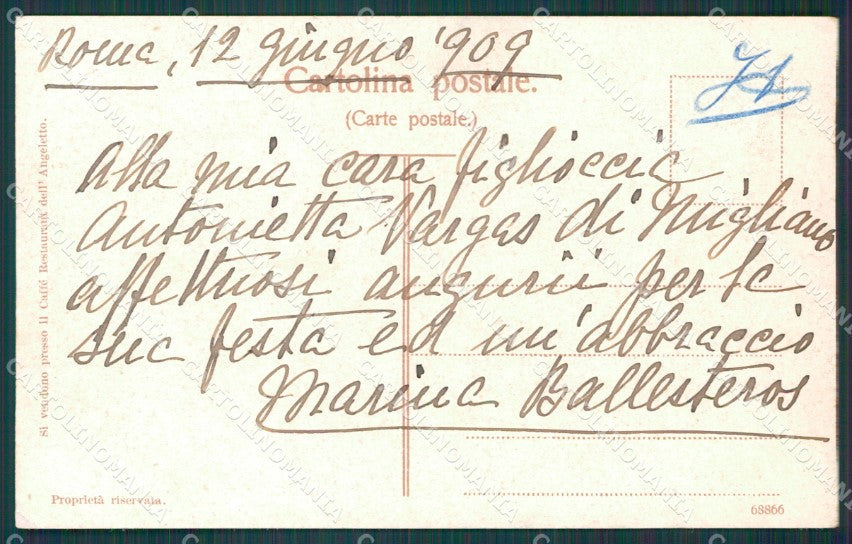 Roma, 12 giugno '909
Cartolina postale.
(Carte postale.)
Alla mia cara figlioccia
Antonietta Vargas di Migliano
affettuosi augurii per la
sua festa ed un'abbraccio
Marina Ballesteros
Si vendono presso il Caffé Restaurant dell' Angeletto.
Proprietà riservata.
68866
CARTOLINOMANIA